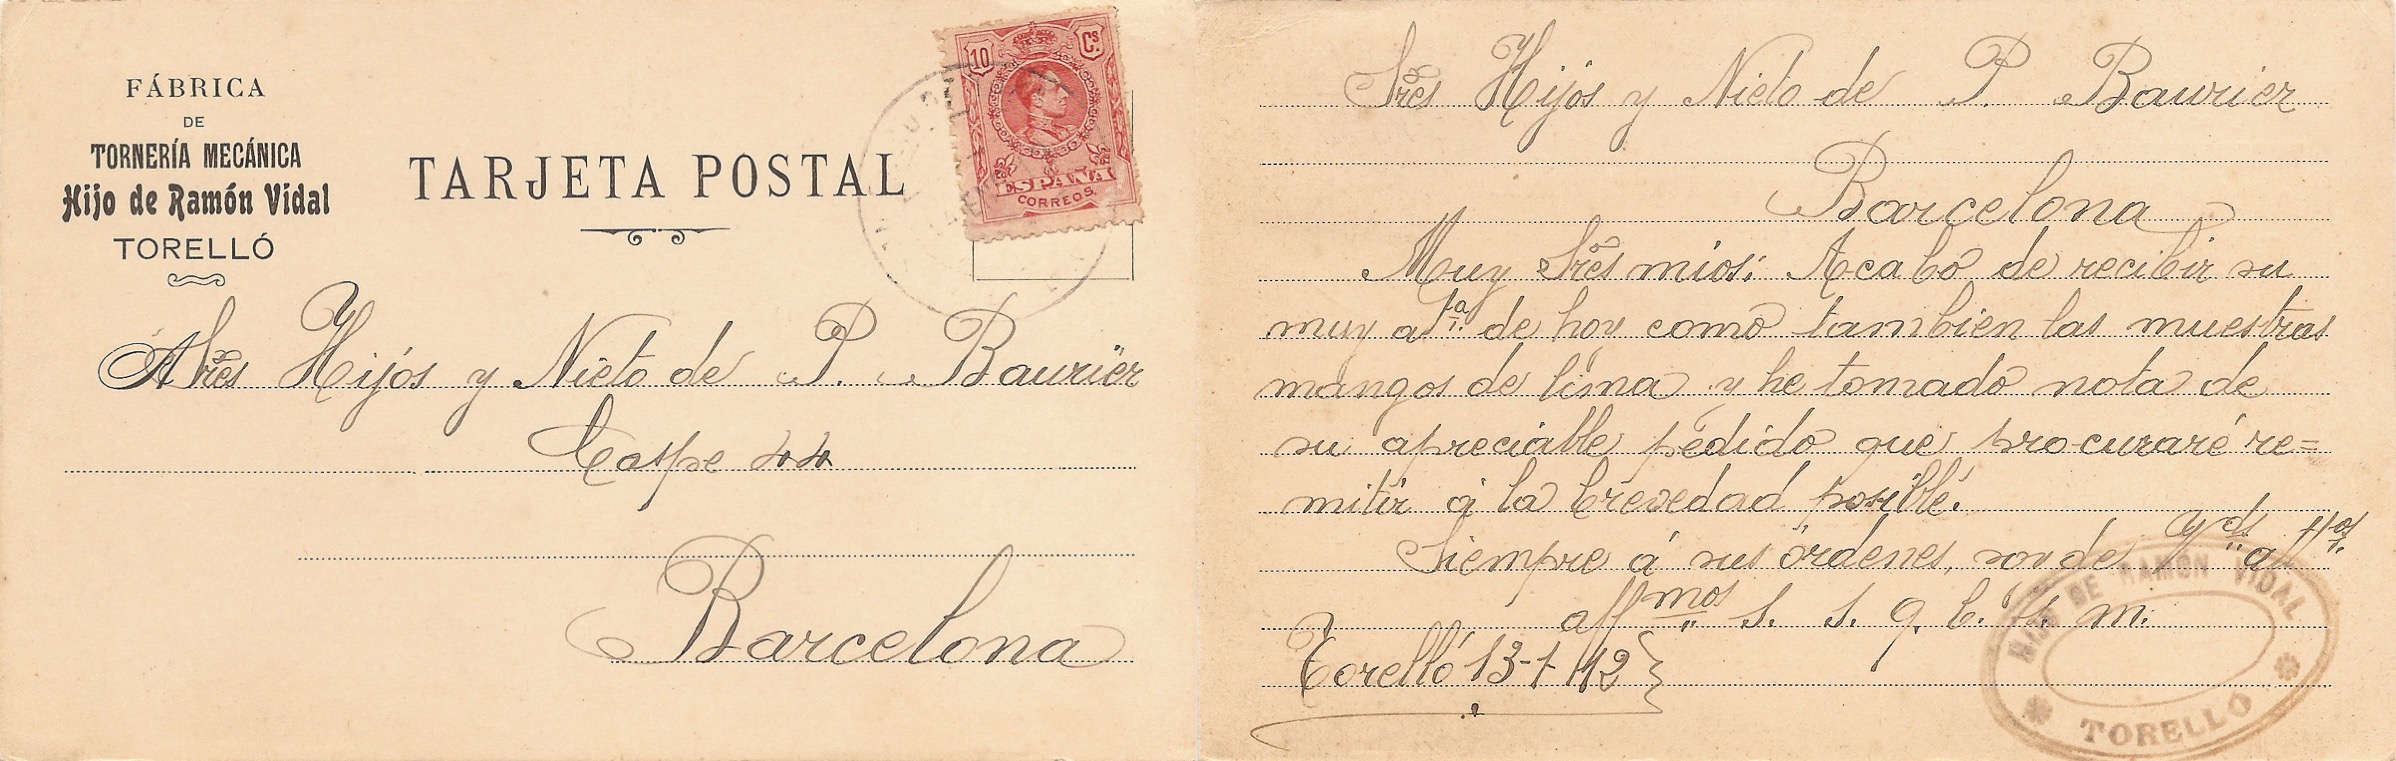 FÁBRICA
DE
TORNERÍA MECÁNICA
Hijo de Ramón Vidal
TORELLÓ
TARJETA POSTAL
10 Cs.
ESPAÑA
CORREOS.
A Sres Hijós y Nieto de P. Baurier
Caspe 44
Barcelona
Sres Hijós y Nieto de P. Baurier
Barcelona
Muy Sres mios: Acabó de recibir su
muy atta de hoy como tambien las muestras
mangos de lima y he tomado nota de
su apreciable pédido que procuraré re=
mitir á la brevedad posiblé.
Siempre á sus órdenes, son de Vds attos
affmos s. s. q. b. s. m.
Torelló 13-1-12
HIJO DE RAMÓN VIDAL
TORELLO